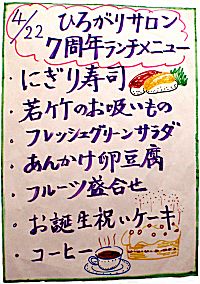 4/22 ひろがりサロン
7周年ランチメニュー
・にぎり寿司
・若竹のお吸いもの
・フレッシュグリーンサラダ
・あんかけ卵豆腐
・フルーツ盛合せ
・お誕生祝いケーキ
・コーヒー